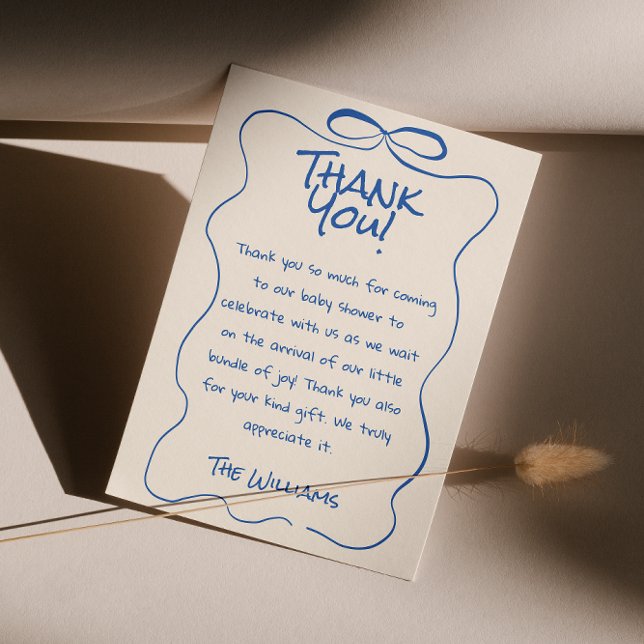 THANK
YOU!
Thank you so much for coming
to our baby shower to
celebrate with us as we wait
on the arrival of our little
bundle of joy! Thank you also
for your kind gift. We truly
appreciate it.
THE WILLIAMS